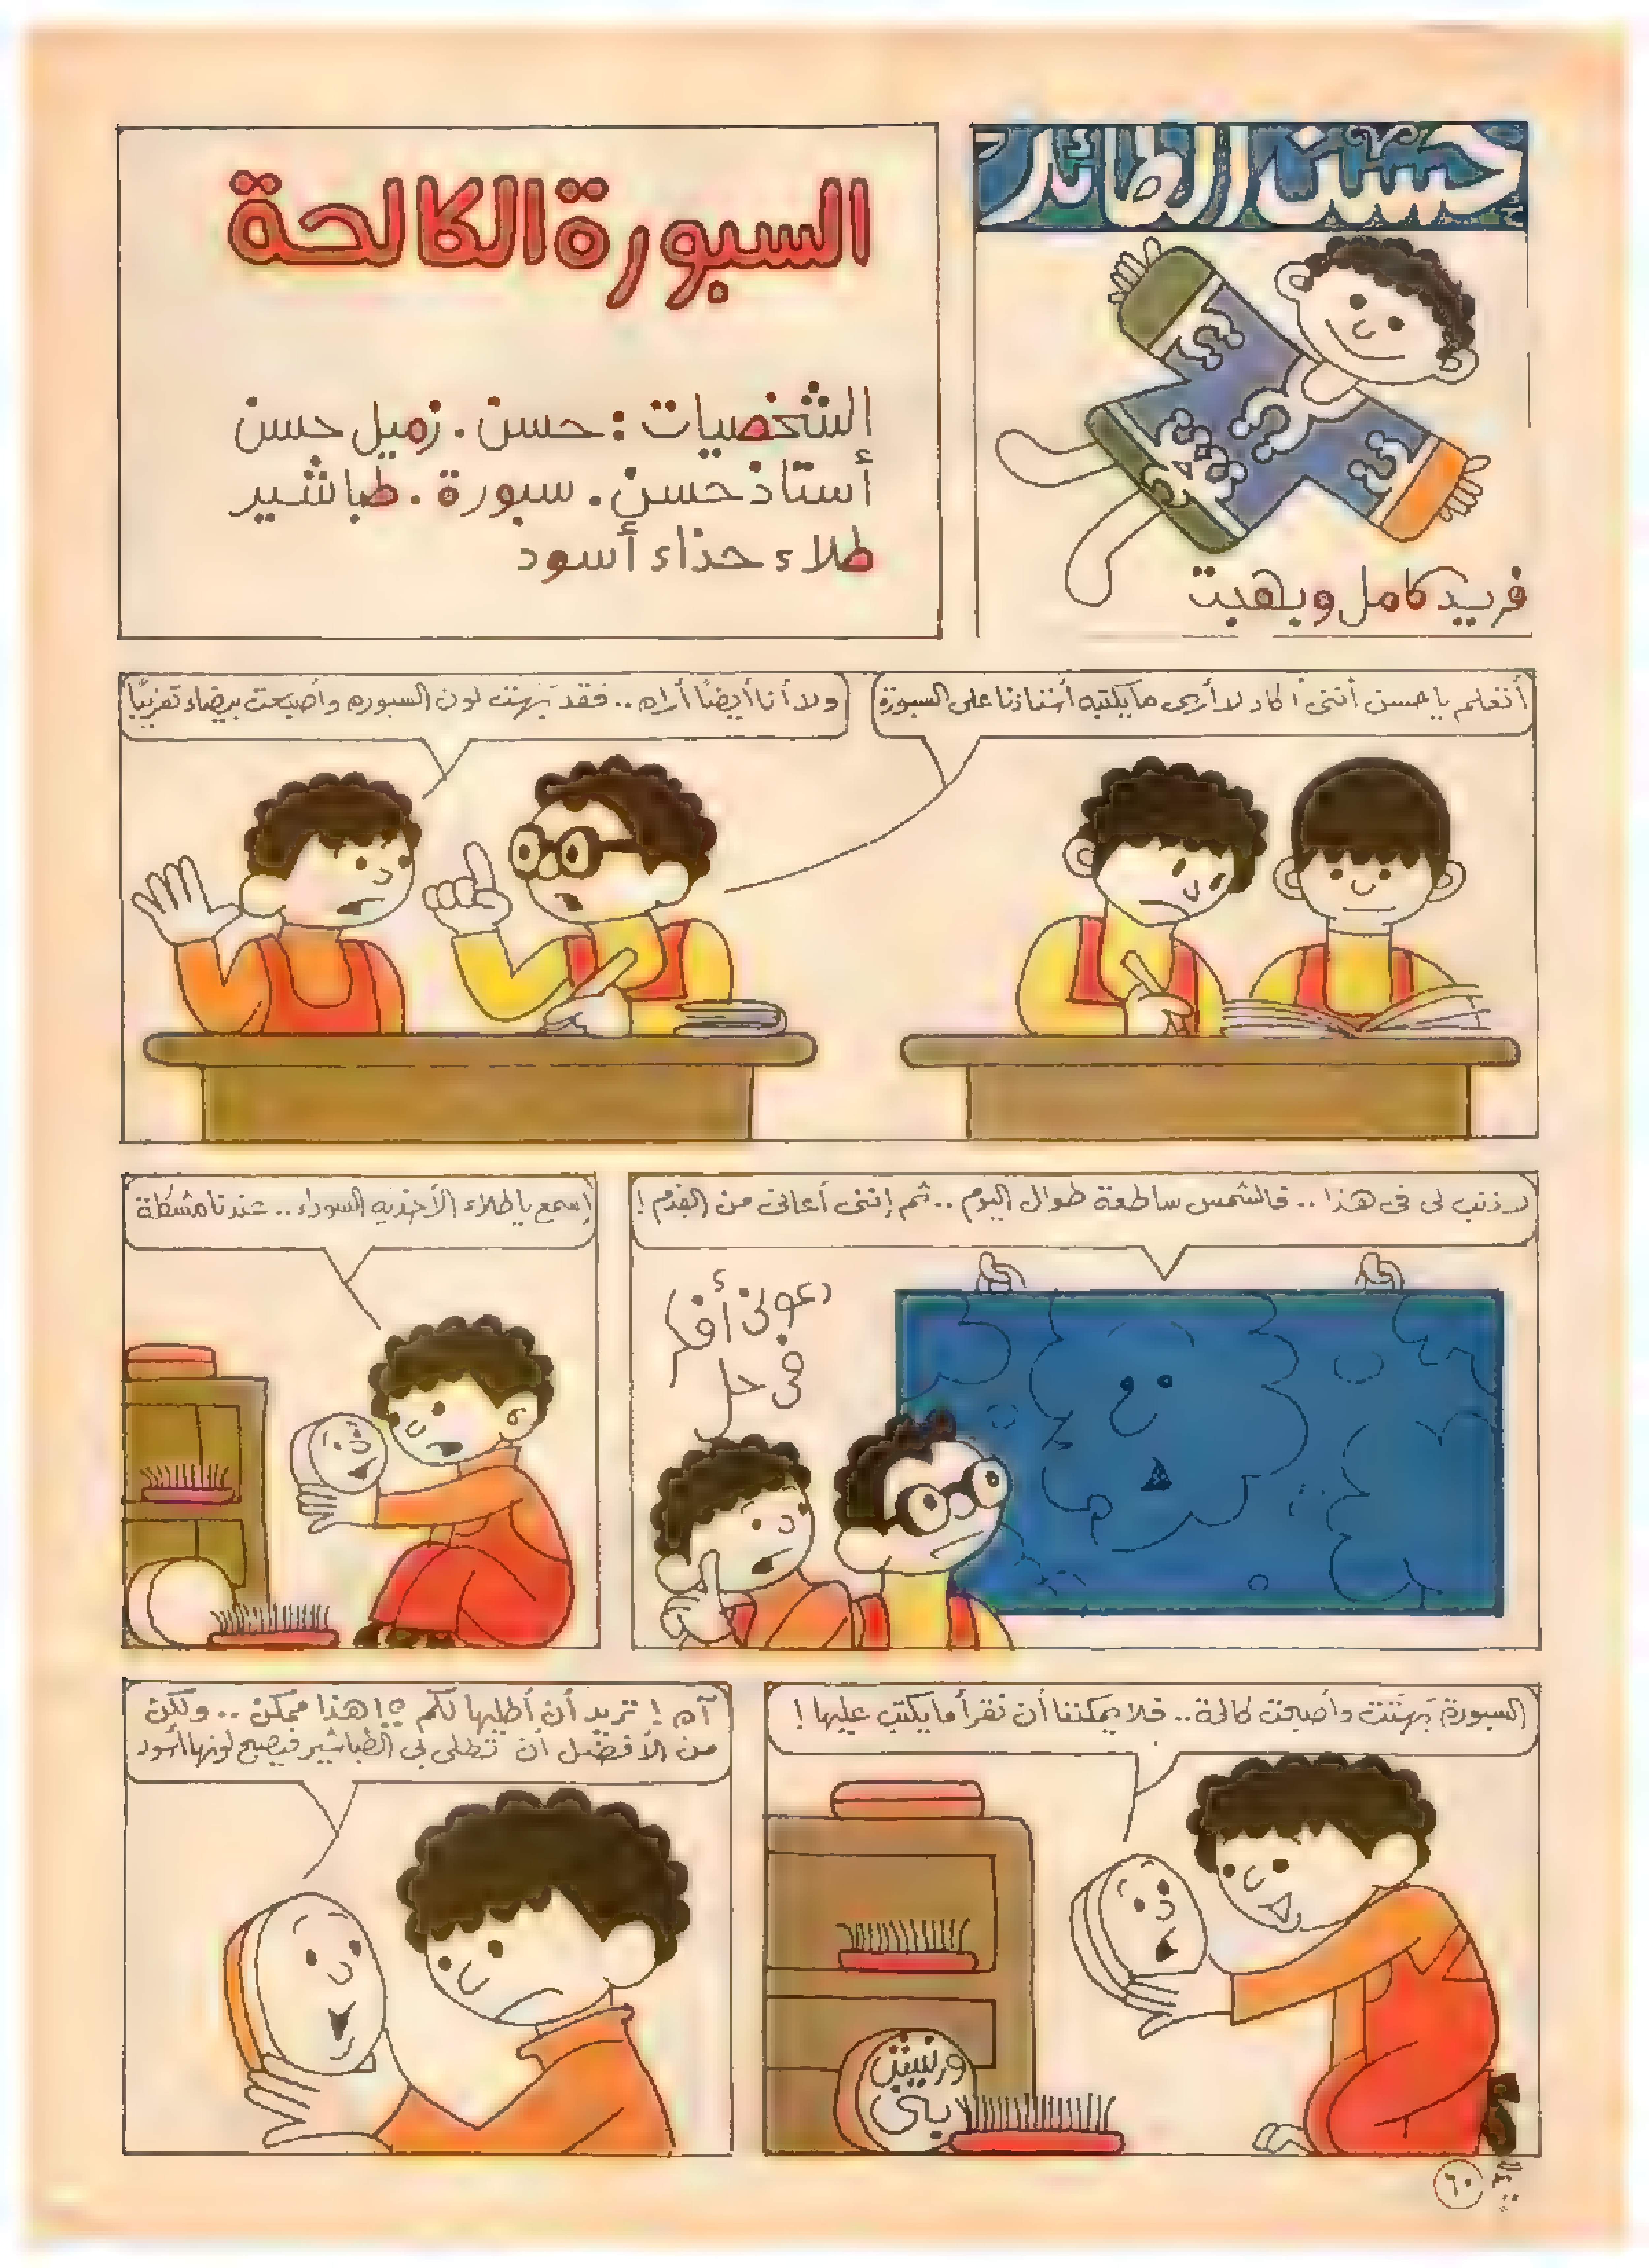 حسن الطائر
فريد كامل وبهجت
السبورة الكالحة
الشخصيات : حسن . زميل حسن
أستاذ حسن . سبورة . طباشير
طلاء حذاء أسود
أتعلم يا حسن أننى أكاد لا أرى ما يكتبه أستاذنا على السبورة
ولا أنا أيضًا أراه .. فقد بهتت لون السبوره وأصبحت بيضاء تقريبًا
لا ذنب لى فى هذا .. فالشمس ساطعة طوال اليوم .. ثم إننى أعانى من القدم !
دعونى أفكر
فى حل
إسمع يا طلاء الأحذيه السوداء .. عندنا مشكلة
السبورة بَهتَت وأصبحت كالحة .. فلا يمكننا أن نقرأ ما يكتب عليها !
ورنيش
بنى
آه ! تريد أن أطليها لكم ؟! هذا ممكن .. ولكن
من الأفضل أن تطلى بى الطباشير فيصبح لونها أسود
٦٠